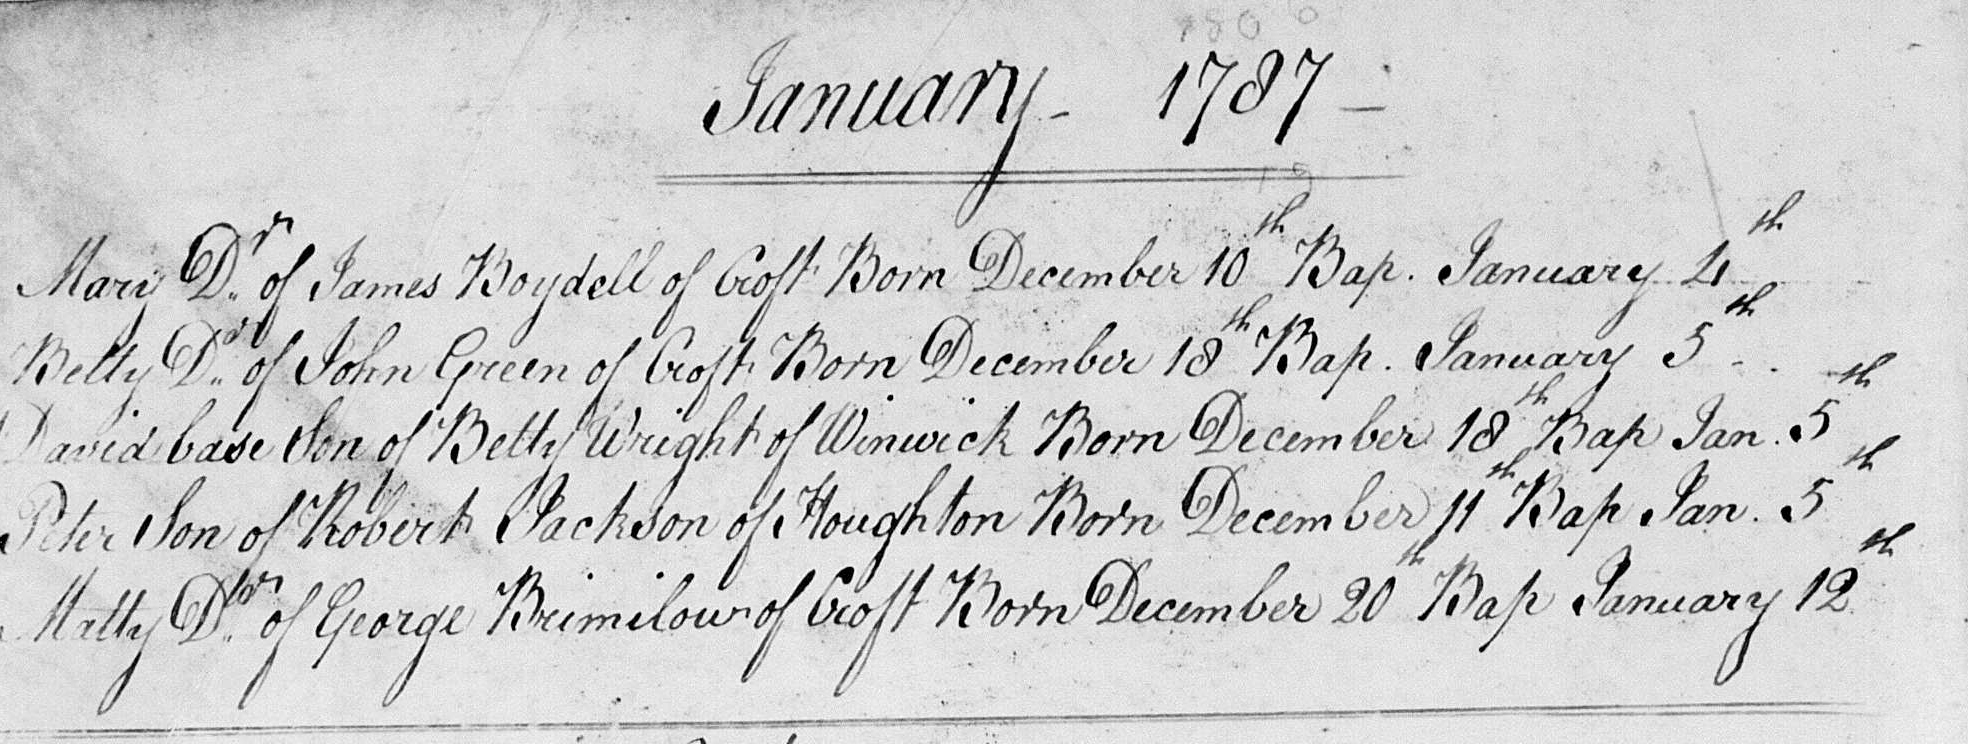 January - 1787 -
Mary Dr. of James Boydell of Croft Born December 10th Bap. January 4th
Betty Dr. of John Green of Croft Born December 18th Bap. January 5th
David base Son of Betty Wright of Winwick Born December 18th Bap Jan. 5th
Peter Son of Robert Jackson of Houghton Born December 11th Bap Jan. 5th
Matty Dr. of George Brimilow of Croft Born December 20th Bap January 12th